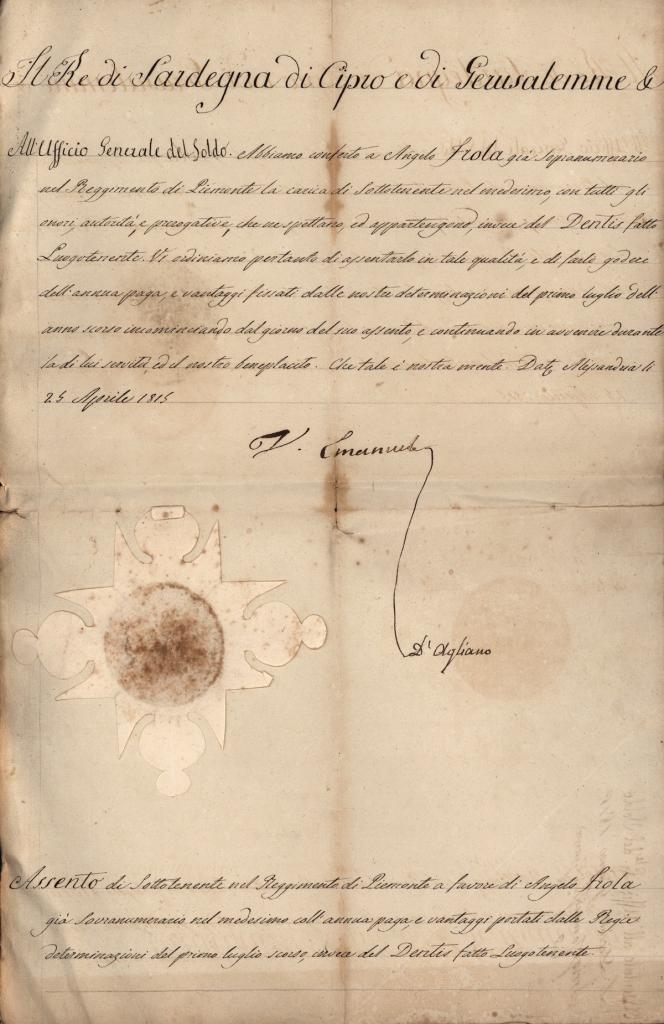 Il Re di Sardegna di Cipro e di Gerusalemme &
All'Ufficio Generale del Soldo. Abbiamo conferto a Angelo Frola già Sopranumerario
nel Reggimento di Piemonte la carica di Sottotenente nel medesimo, con tutti gli
onori, autorità, e prerogative, che ne spettano, ed appartengono, invece del Dentis fatto
Luogotenente. Vi ordiniamo pertanto di assentarlo in tale qualità, e di farlo godere
dell'annua paga, e vantaggi fissati dalle nostre determinazioni del primo luglio dell'
anno scorso incominciando dal giorno del suo assento, e continuando in avvenire durante
la di lui servitù, ed il nostro beneplacito. Che tale è nostra mente. Dat. Alessandria li
25 Aprile 1815
V. Emanuele
D'Agliano
Assento di Sottotenente nel Reggimento di Piemonte a favore di Angelo Frola
già Sovranumerario nel medesimo coll'annua paga, e vantaggi portati dalle Regie
determinazioni del primo luglio scorso, invece del Dentis fatto Luogotenente.